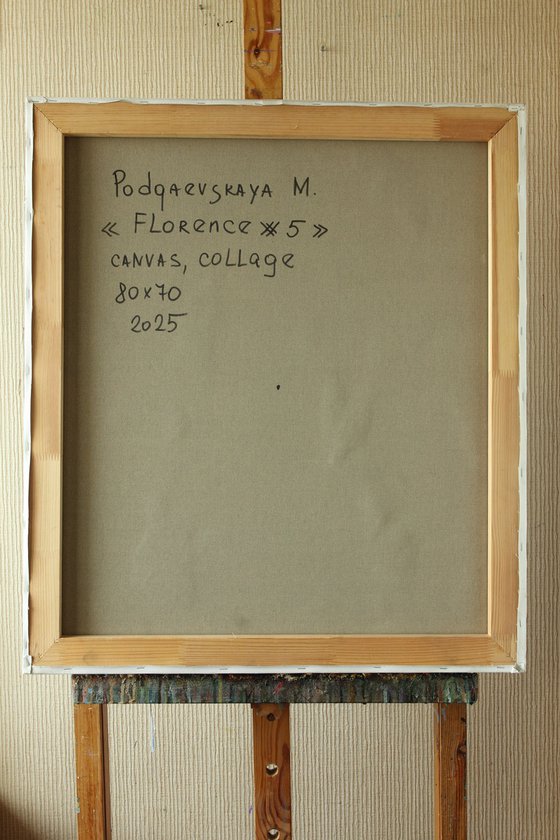 Podgaevskaya M.
« Florence #5 »
canvas, collage
80x70
2025